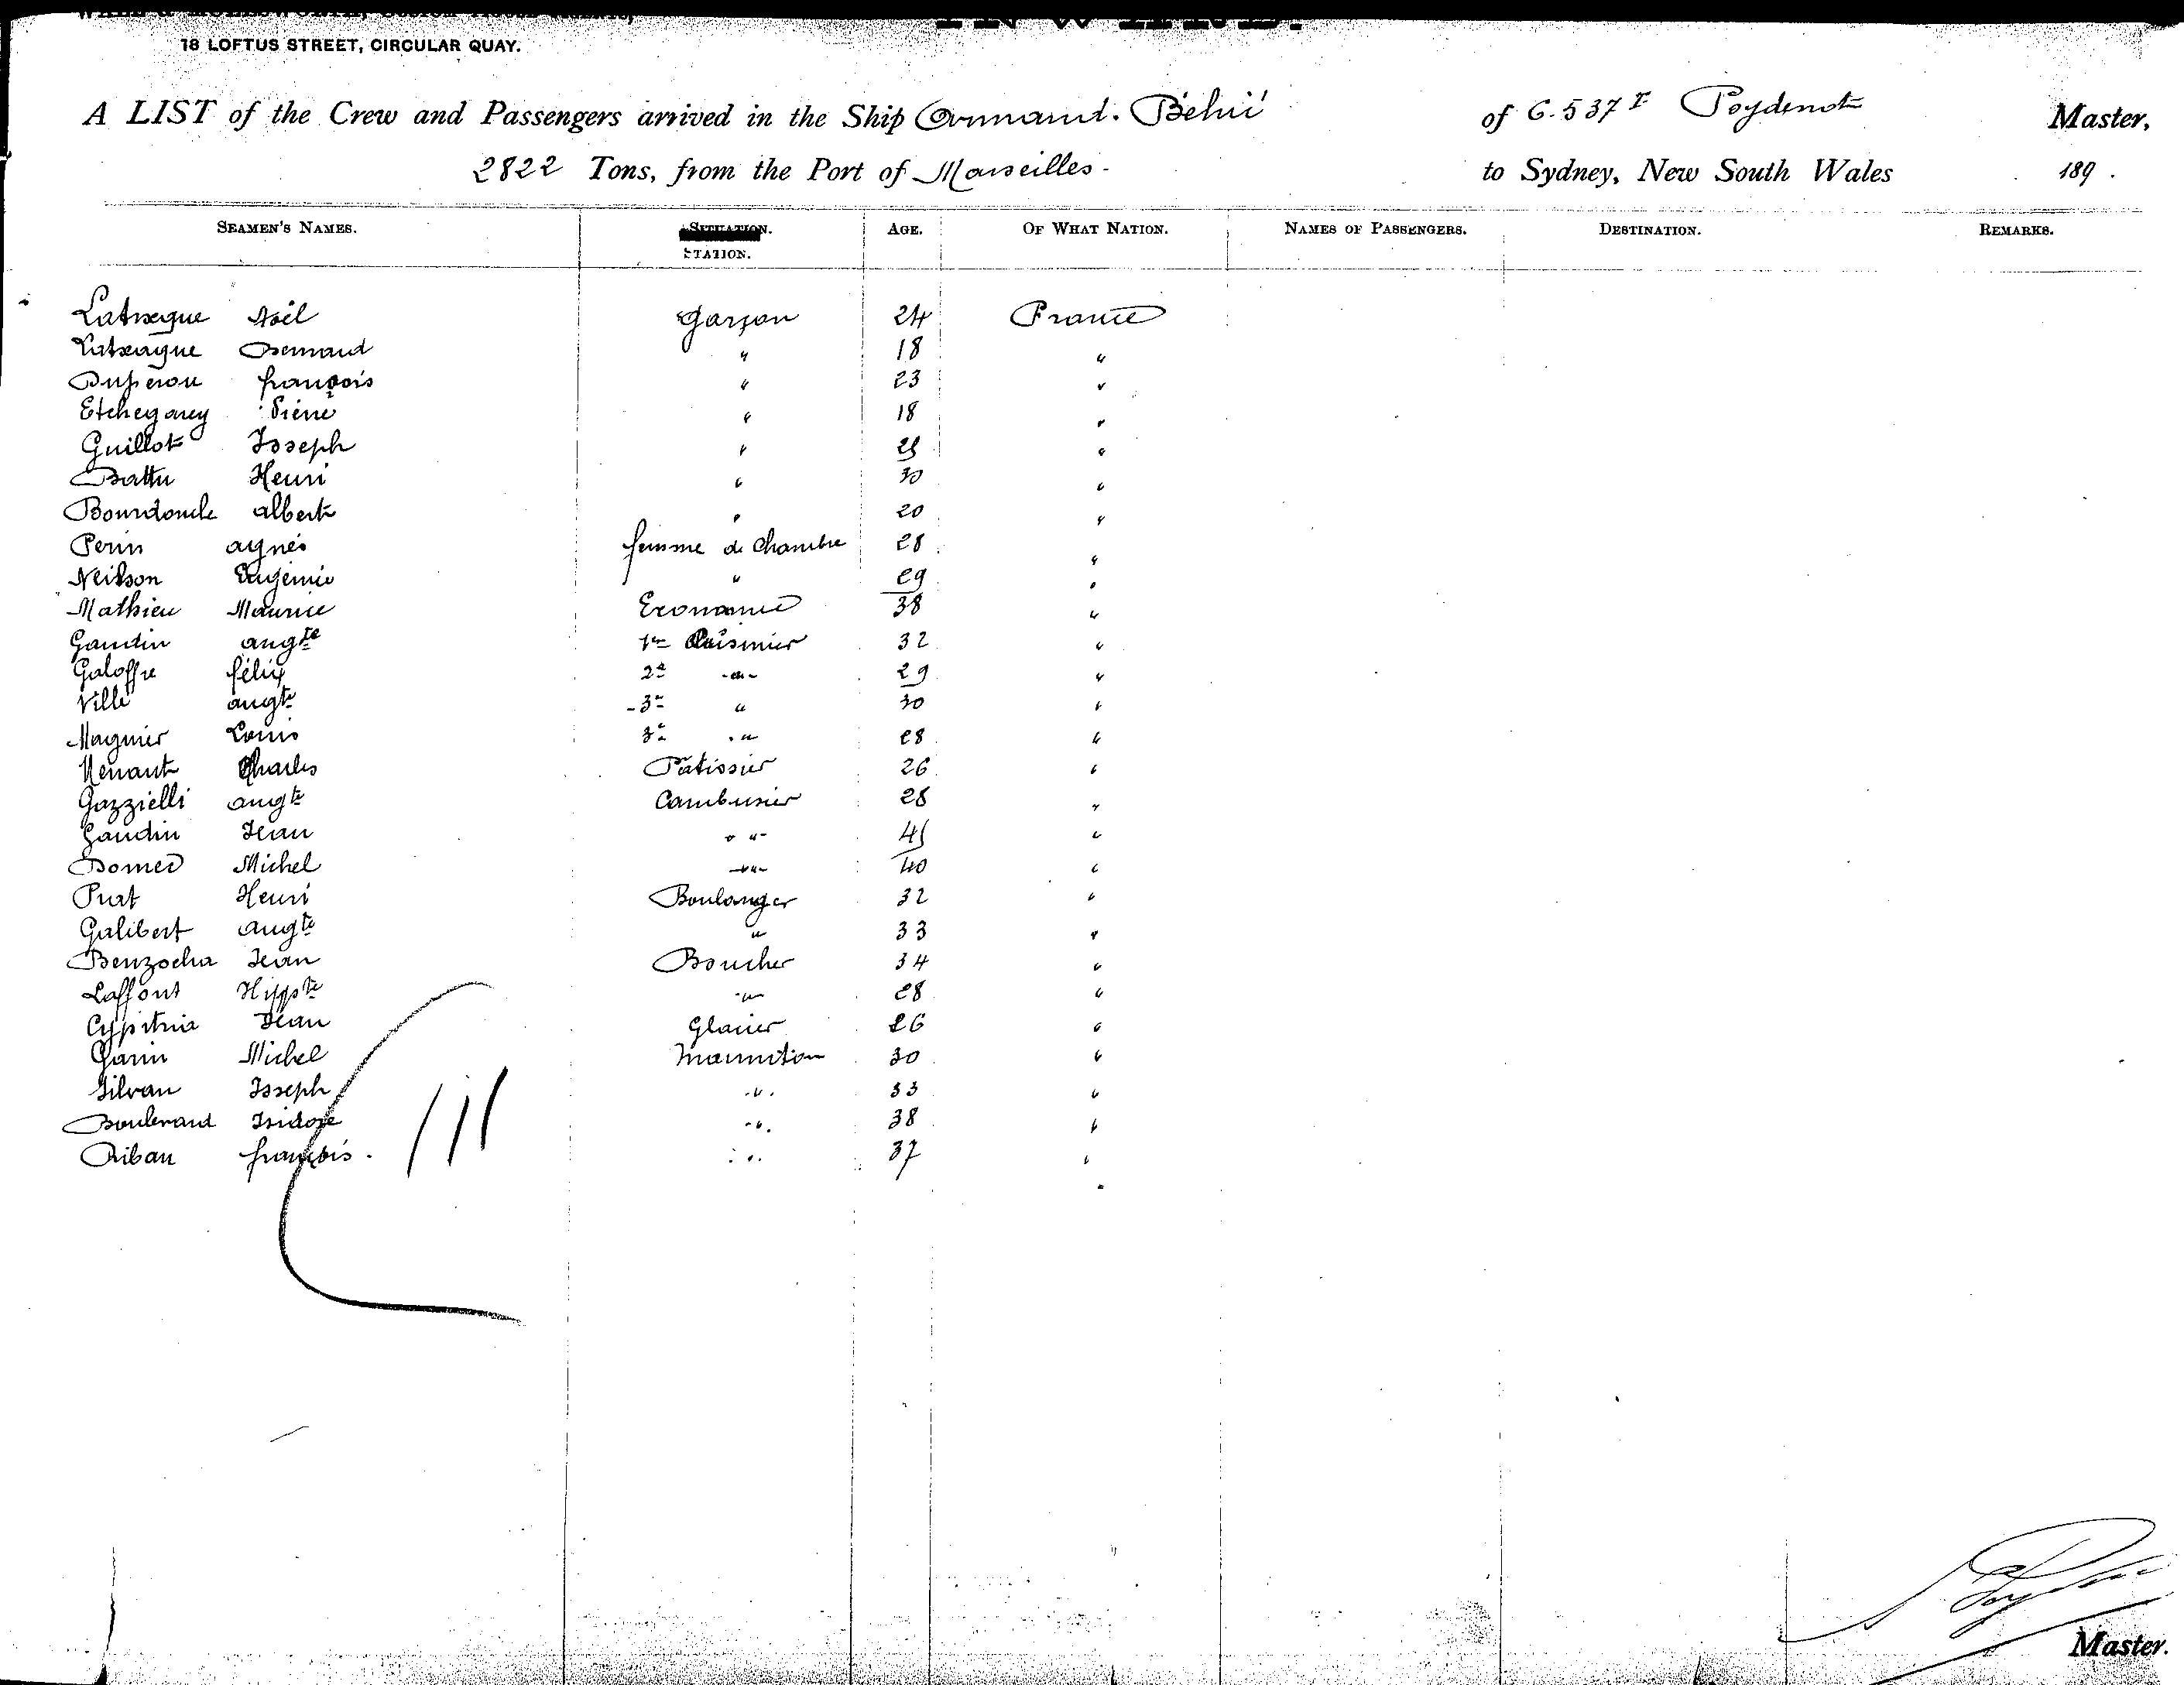 18 LOFTUS STREET, CIRCULAR QUAY.
A LIST of the Crew and Passengers arrived in the Ship Armand. Béhic of 6.537 Poydenot Master,
2822 Tons, from the Port of Marseilles - to Sydney, New South Wales 189 .
SEAMEN'S NAMES. SITUATION. AGE. OF WHAT NATION. NAMES OF PASSENGERS. DESTINATION. REMARKS.
STATION.
Latxague garçon 24 France
Latxague Bernard " 18 "
Duperou françois " 23 "
Etchegarey Pierre " 18 "
Guillot Joseph " "
Battu Henri " 30 "
Bourdoncle albert " 20 "
Perin agnés femme de Chambre 28 "
Neilson Eugénie " 29 "
Mathieu Maurice Econome 38 "
Gaudin augte 1er Cuisinier 32 "
Galoffre félix 2e " 29 "
Ville augte 3e " 30 "
Magnier Louis 3e " 28 "
Charles Patissier 26 "
Gazzielli augte Cambusier 28 "
Gaudin Jean " "
Michel " 40 "
Prat Henri Boulanger 32 "
Galibert augte " 33 "
Benzocha Jean Boucher 34 "
Laffont Hippte " 28 "
Jean Glacier 26 "
Garin Michel Marmiton 30 "
Silvan Joseph " 33 "
Boulevard Isidore " 38 "
Riban françois. " 37 "
Master.